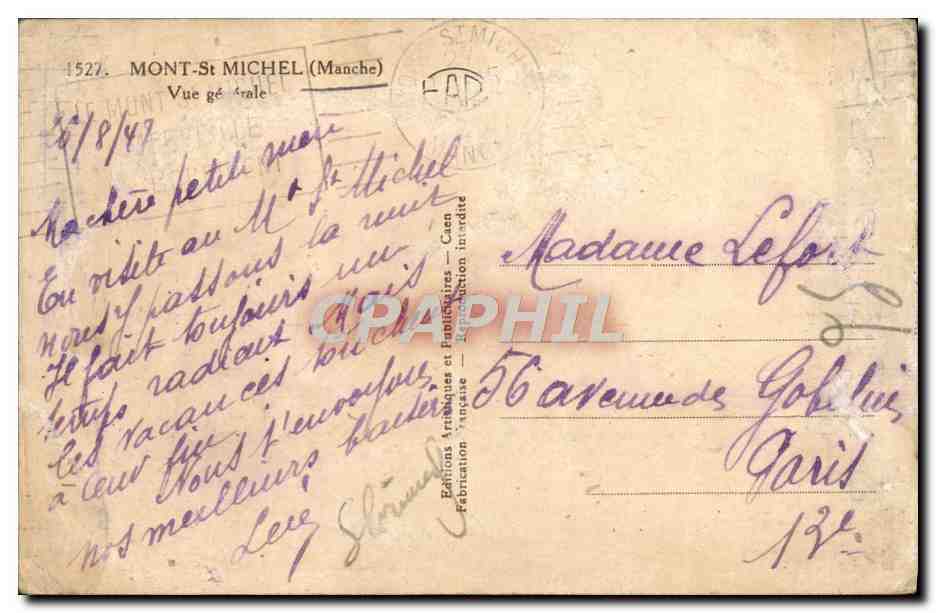 1527. MONT-St MICHEL (Manche)
Vue générale
ST MICHEL
EAP
26/8/47
Ma chère petite mère
En visite au Mt St Michel
nous y passons la nuit
Il fait toujours un
temps radieux mais
les vacances touchent
à leur fin
Nous t'envoyons
nos meilleurs baisers
Editions Artistiques et Publicitaires — Caen
Fabrication Française — Reproduction interdite
Madame Lefort
56 avenue des Gobelins
Paris
13e
CPAPHIL